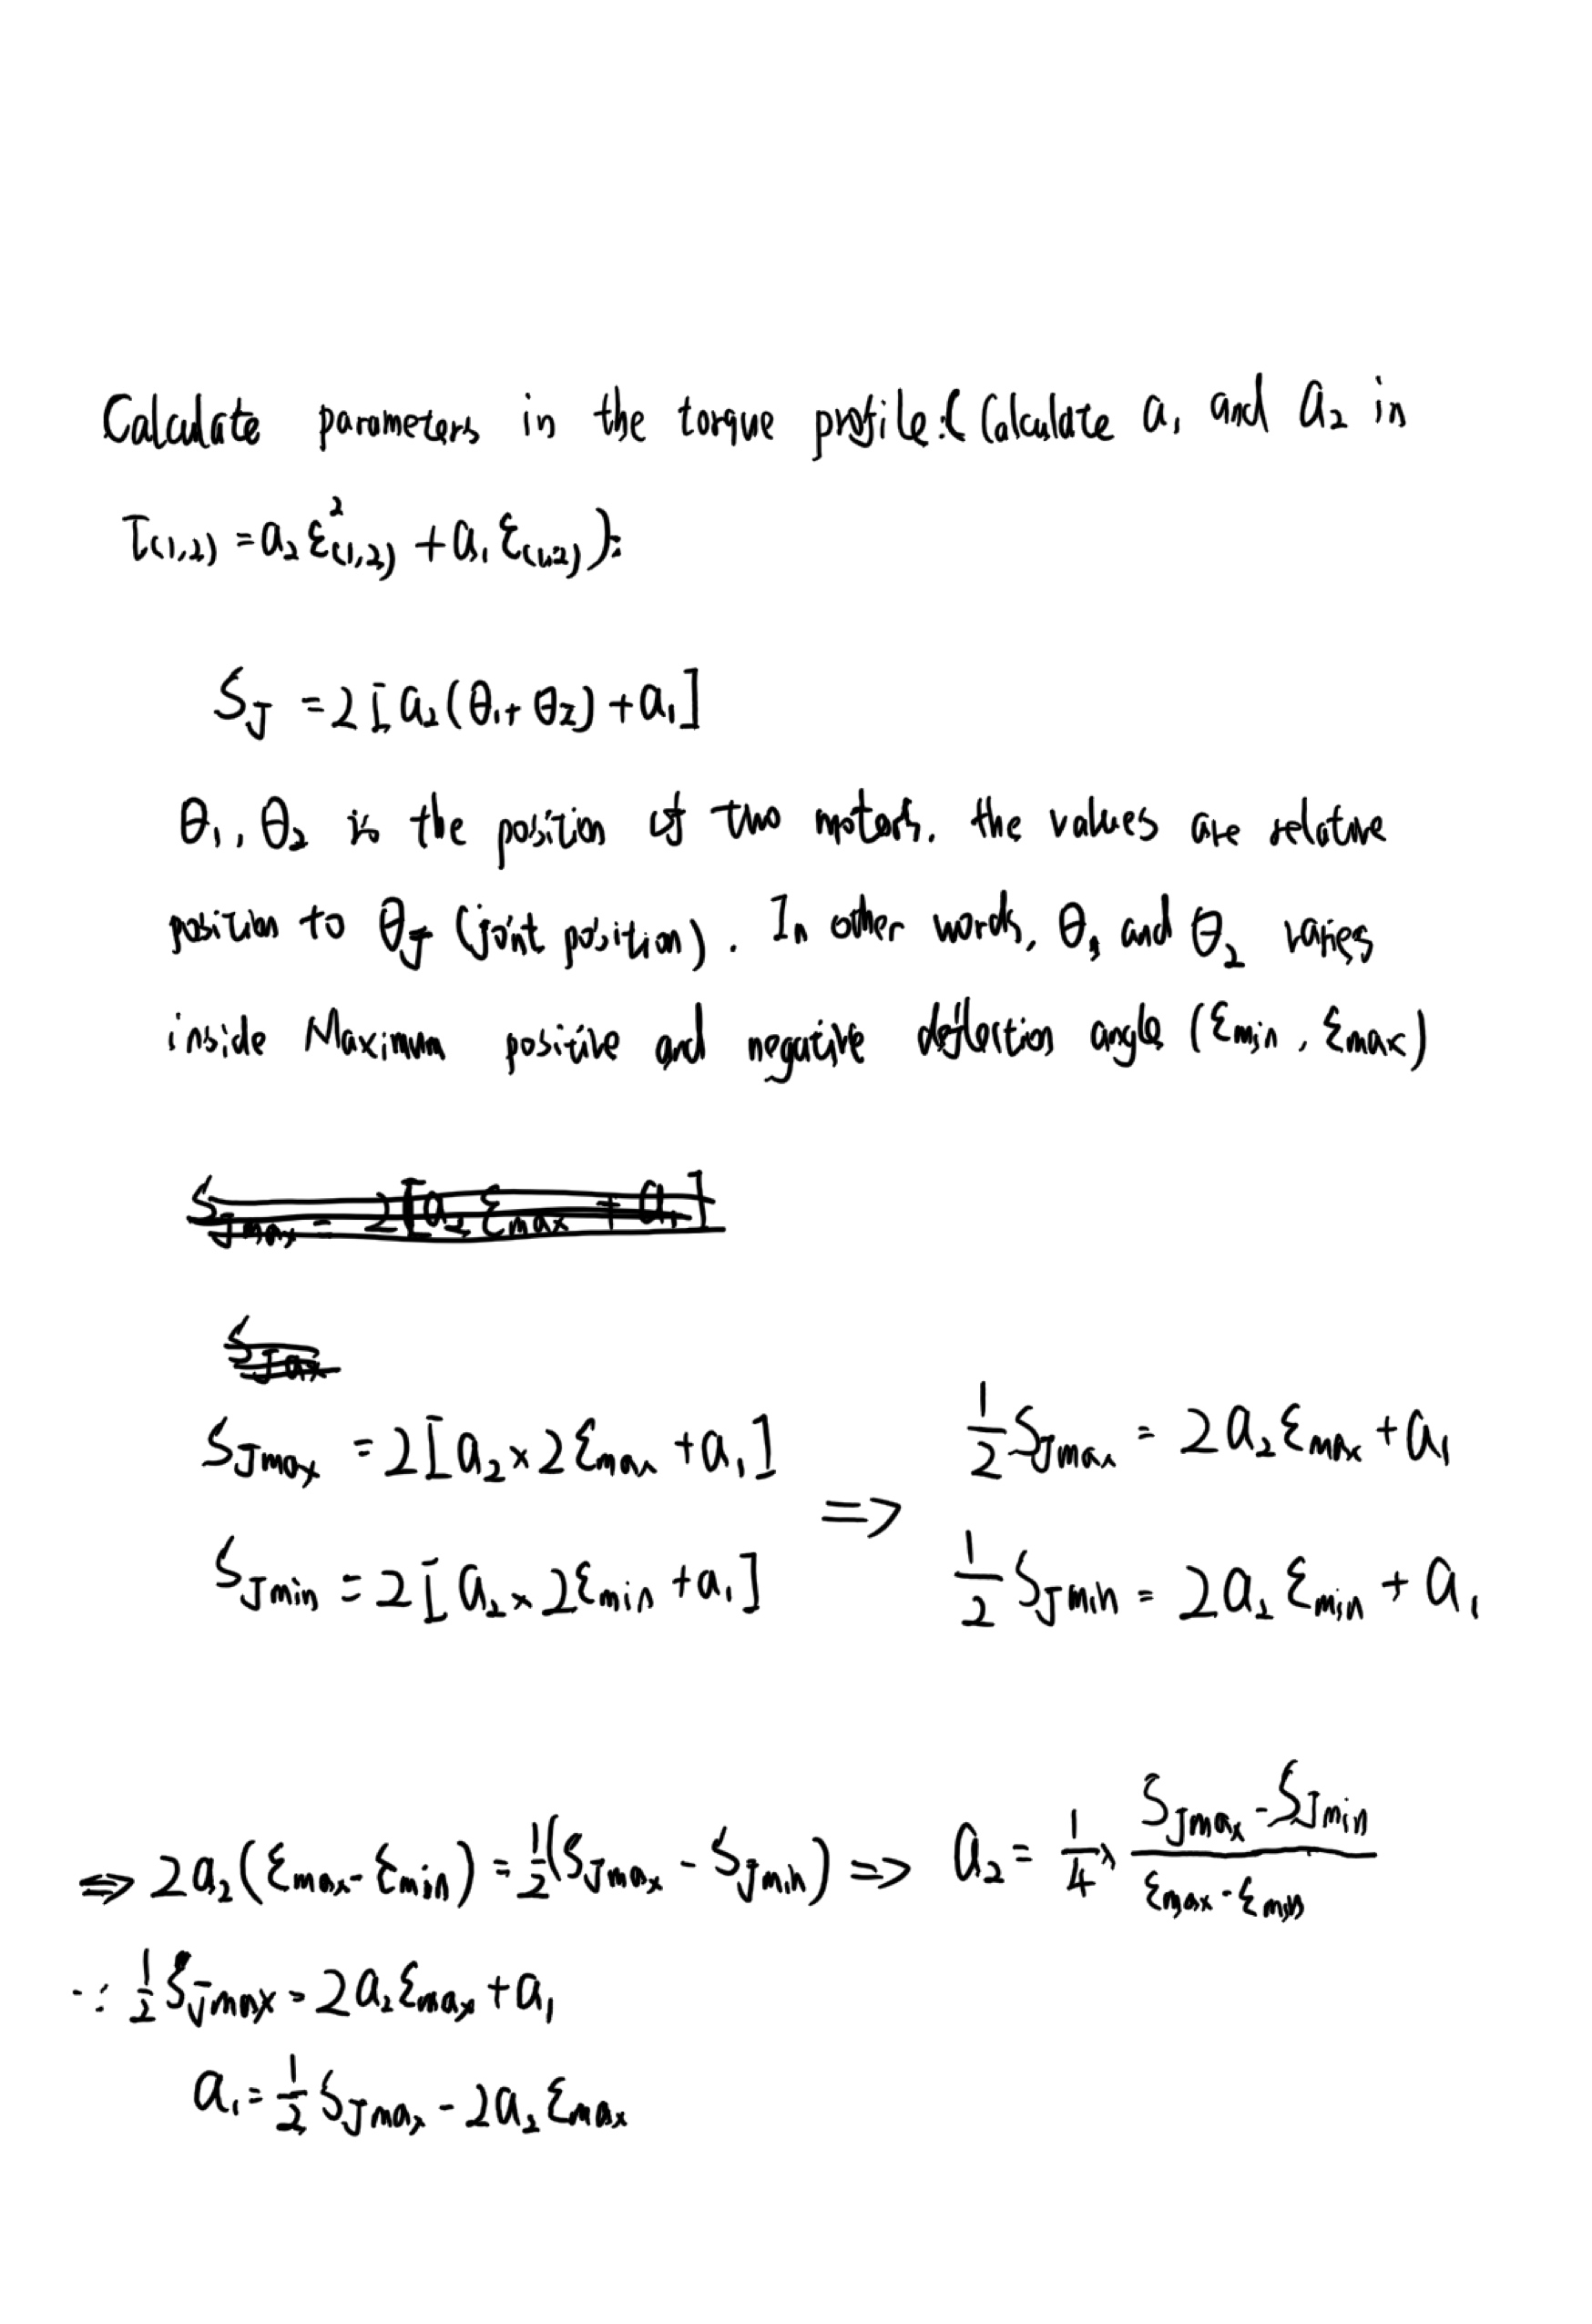 Calculate parameters in the torque profile:( Calculate a₁ and a₂ in
τ(1,2) = a₂ε²(1,2) + a₁ε(1,2)):
S_J = 2[a₂(θ₁+θ₂)+a₁]
θ₁, θ₂ is the position of two motors. the values are relative
position to θ_J (joint position). In other words, θ₁ and θ₂ varies
inside Maximum positive and negative deflection angle (εmin, εmax)
S_Jmax = 2[a₂ εmax + a₁]
S_Jax
S_Jmax = 2[a₂×2εmax+a₁]
=> ½S_Jmax = 2a₂εmax+a₁
S_Jmin = 2[a₂×2εmin+a₁]
½S_Jmin = 2a₂εmin+a₁
=> 2a₂(εmax-εmin) = ½(S_Jmax-S_Jmin) => a₂ = ¼× (S_Jmax-S_Jmin)/(εmax-εmin)
∵ ½S_Jmax = 2a₂εmax+a₁
a₁ = ½S_Jmax - 2a₂εmax